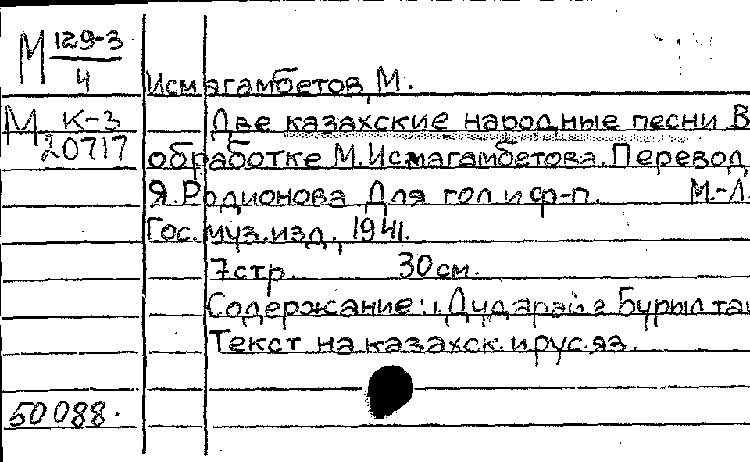 М 129-3
4
Исмагамбетов, М.
М К-3
20717
Две казахские народные песни В
обработке М. Исмагамбетова. Перевод
Я. Родионова Для гол. и ф-п. М.-Л.
Гос. муз. изд., 1941.
7 стр. 30 см.
Содержание: 1. Дударай 2 Бурыл тай
Текст на казахск. и рус. яз.
50088.